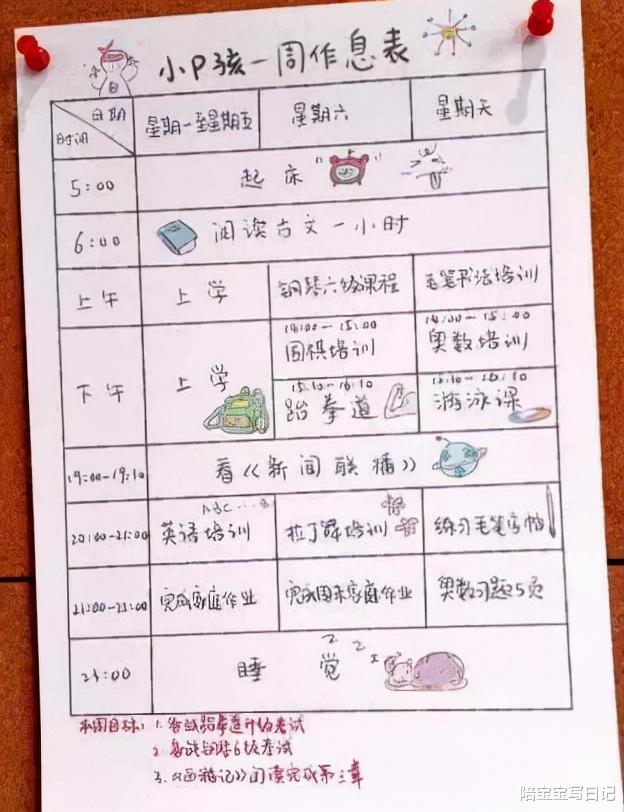 小P孩一周作息表
日期
时间
星期一至星期五 星期六 星期天
5:00 起床
6:00 阅读古文一小时
上午 上学 钢琴六级课程 毛笔书法培训
下午 上学
14:00-15:00 14:00-15:00
围棋培训 奥数培训
15:10-16:10 15:10-16:10
跆拳道 游泳课
19:00-19:10 看《新闻联播》
ABC...
20:00-21:00 英语培训 拉丁舞培训 练习毛笔字帖
21:00-23:00 完成家庭作业 完成周末家庭作业 奥数习题5页
23:00 睡觉 z z z
本周目标: 1. 备战跆拳道升级考试
2. 备战钢琴6级考试
3.《西游记》阅读完成第三章
陪宝宝写日记